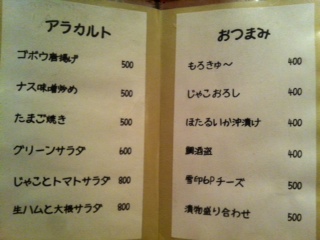 アラカルト
ゴボウ唐揚げ 500
ナス味噌炒め 500
たまご焼き 500
グリーンサラダ 600
じゃことトマトサラダ 800
生ハムと大根サラダ 800
おつまみ
もろきゅ〜 400
じゃこおろし 400
ほたるいか沖漬け 400
400
チーズ 500
漬物盛り合わせ 500